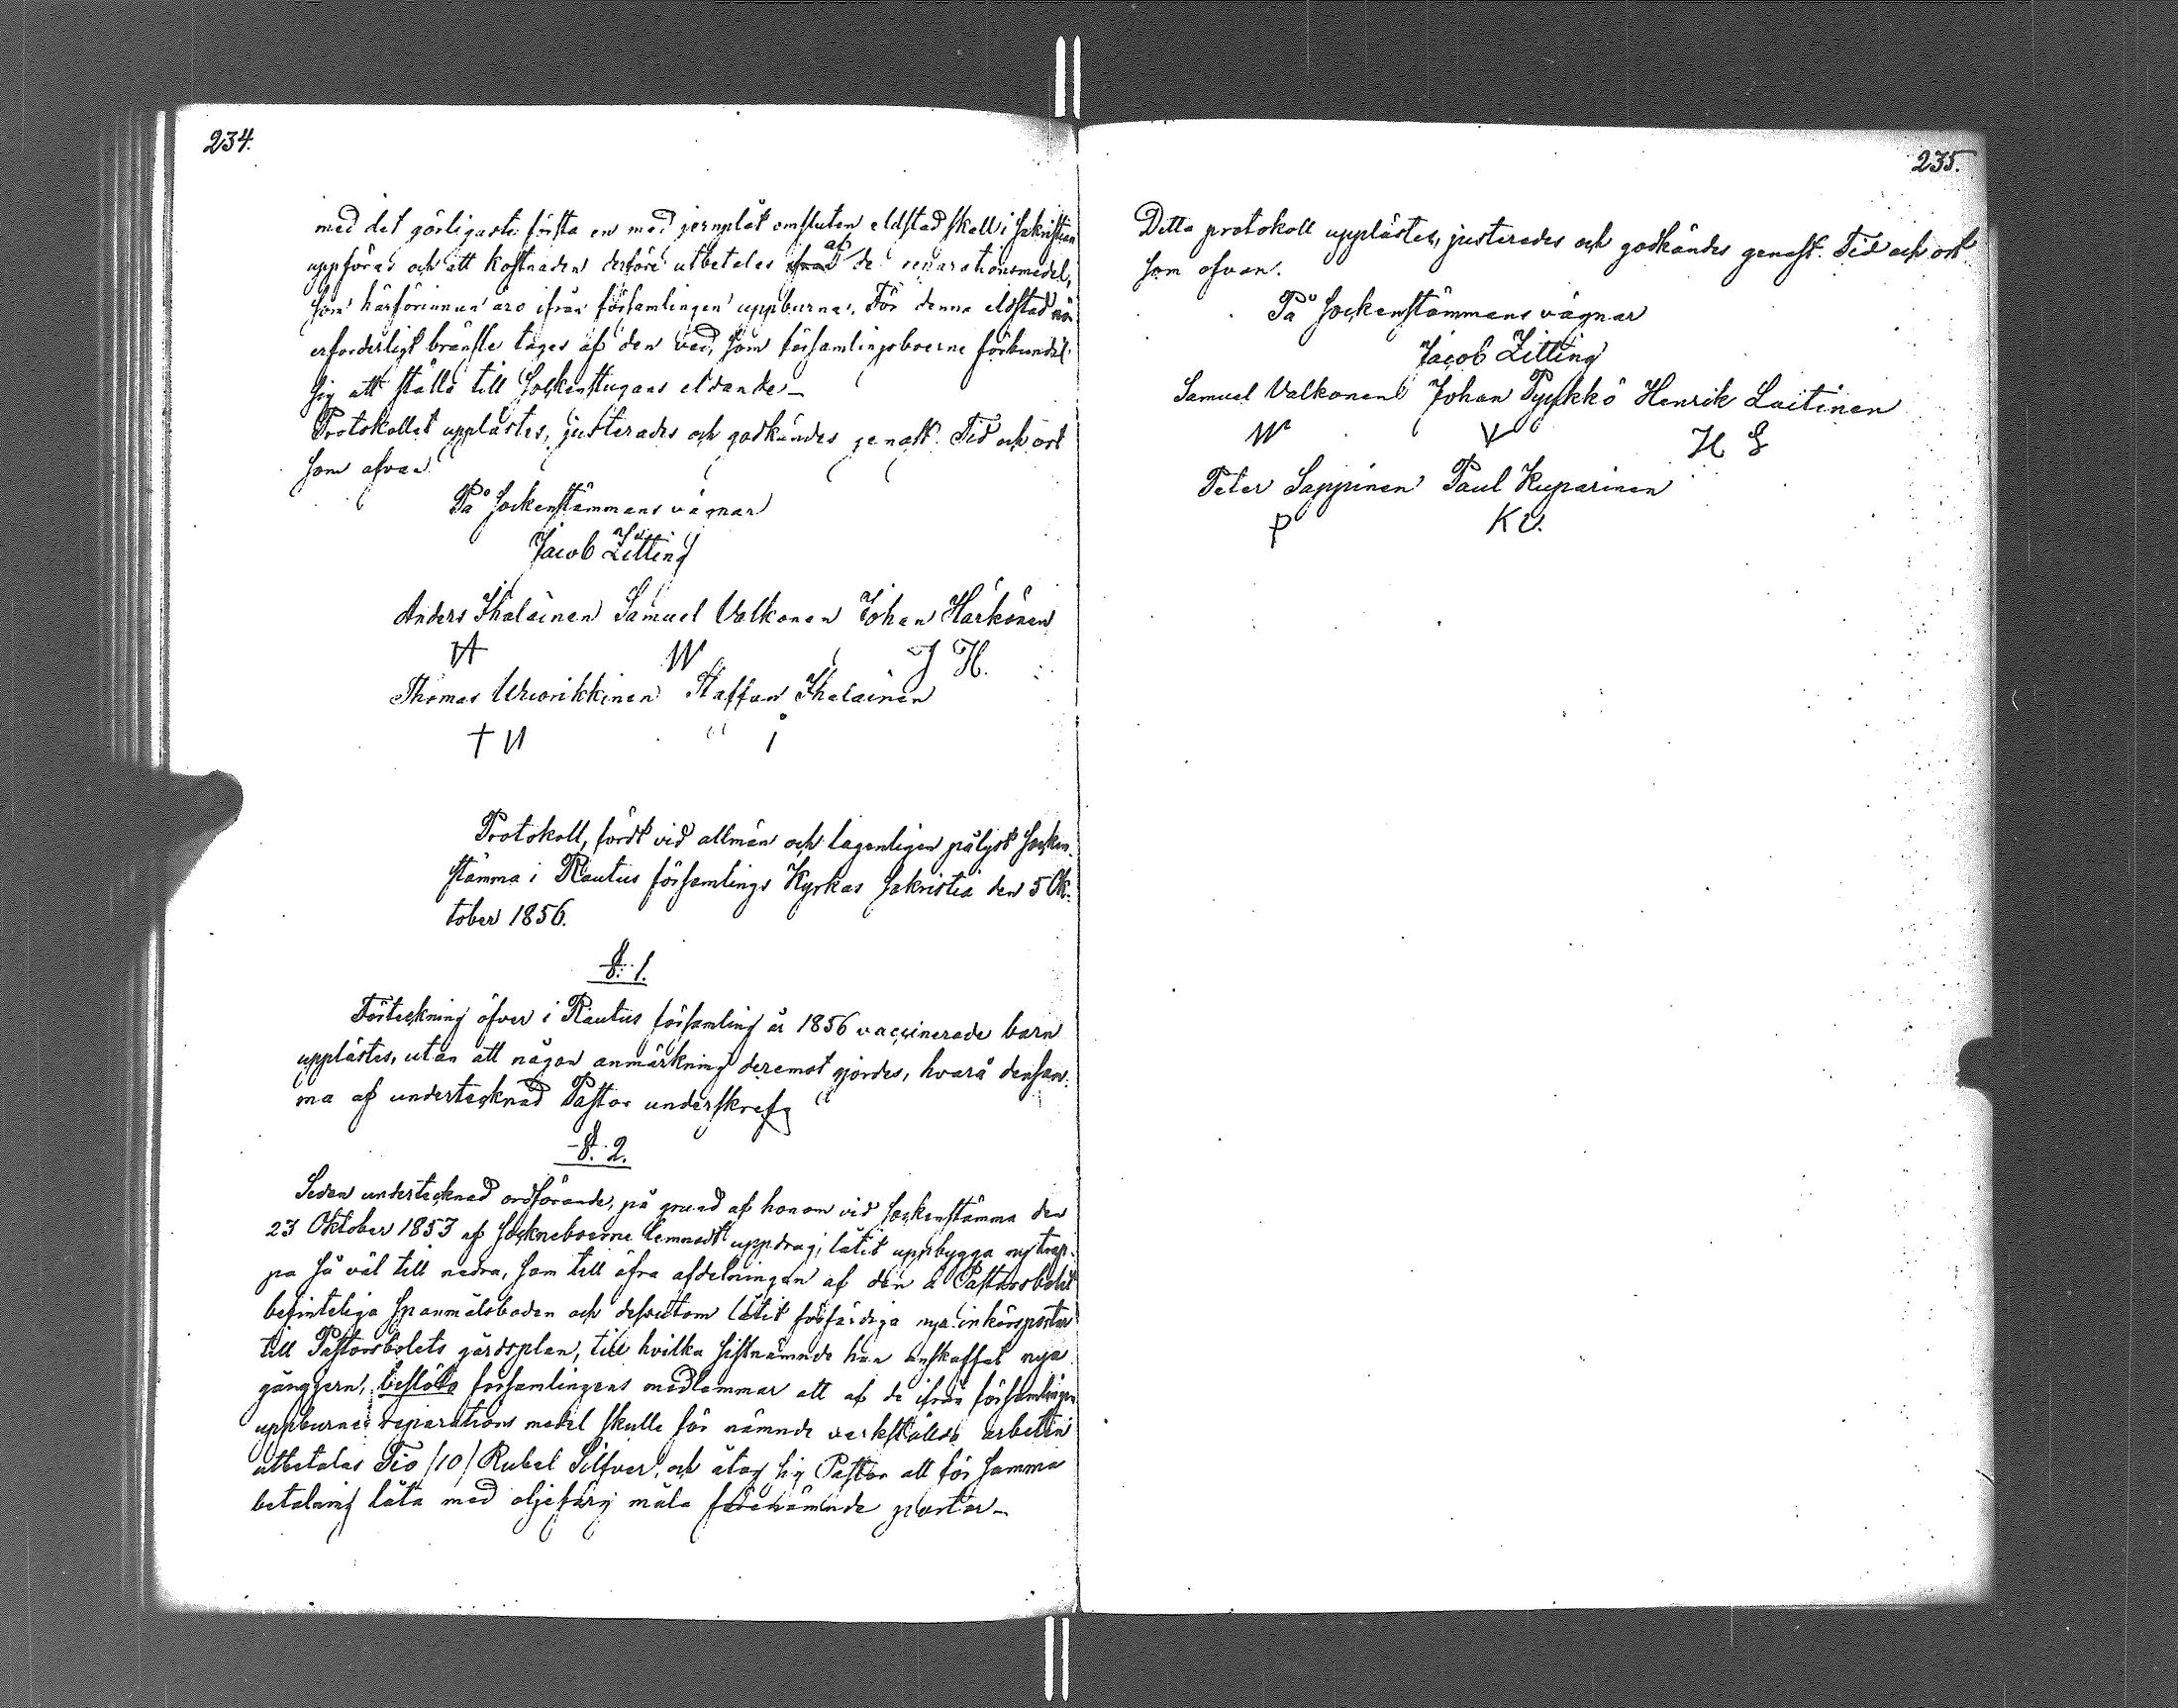 234.
med det görligaste första en med jernplåt omsluten eldstad skall i Sakristian
uppföras och att kostnaden derföre utbetales af de reparationsmedel,
som härförinnan äro ifrån församlingen uppburna. För denna eldstad
erforderligt bränsle tages af den ved, som församlingsboerne förbundit
sig att ställa till Sockenstugans eldande_
Protokollet upplästes, justerades och godkändes genast. Tid och ort
som ofvan
På Sockenstämmans vägnar
Jacob Zitting
Anders Ihalainen Samuel Valkonen Johan Härkönen
W J H.
Thomas Wuorikkinen Staffan Ihalainen
Protokoll, fördt vid allmän och lagenligen pålyst Socken-
stämma i Rautus församlings Kyrkas Sakristia den 5 Ok-
tober 1856.
§. 1.
Förteckning öfver i Rautus församling år 1856 vaccinerade barn
upplästes, utan att någon anmärkning deremot gjordes, hvarå densam-
ma af undertecknad Pastor underskrefs
§. 2.
Sedan undertecknad ordförande, på grund af honom vid Sockenstämma den
23 Oktober 1853 af Sockneboerne lemnadt uppdrag, låtit uppbygga ny trap-
pa så väl till nedra, som till öfra afdelningen af den å Pastorsbolet
befinteliga Spanmålsboden och dessutom låtit förfärdiga nya inkörsportar
till Pastorsbolets gårdsplan, till hvilka sistnämnde han anskaffat nya
gångjern, beslöto församlingens medlemmar att af de ifrån församlingen
uppburne reparations medel skulle för nämnde verkstälda arbeten
utbetalas Tio /10/ Rubel Silfver, och åtog sig Pastor att för samma
betalning låta med oljefärg måla förenämnde portar_
235.
Detta protokoll upplästes, justerades och godkändes genast. Tid och ort
som ofvan.
På Sockenstämmans vägnar
Jacob Zitting
Samuel Valkonen Johan Pyykkö Henrik Laitinen
W V H L
Peter Lappinen Paul Kuparinen
P KU.